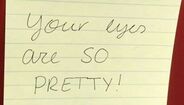 Your eyes
are SO
PRETTY!